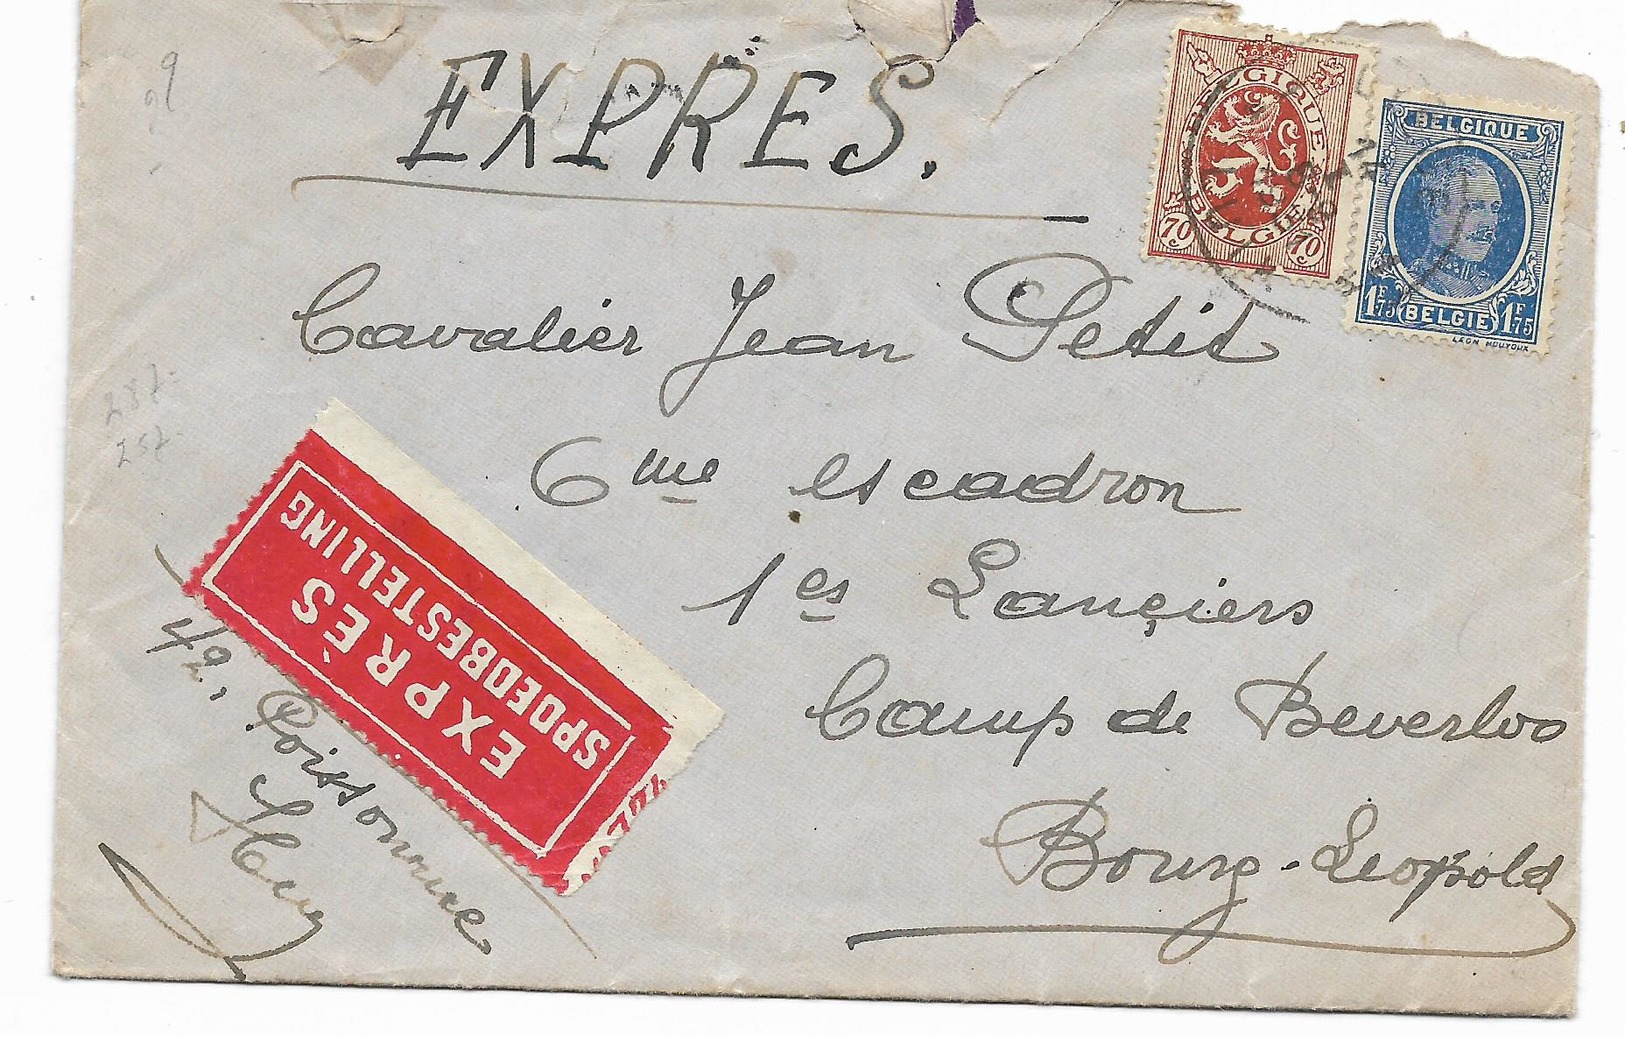 EXPRES.
BELGIQUE
BELGIË
70c 70c
BELGIQUE
1F75 BELGIE 1F75
LEON HOUYOUX
Cavalier Jean Petit
6me escadron
1es Lançiers
Camp de Beverloo
Bourg-Leopold
EXPRÈS
SPOEDBESTELLING
42, Poissonrue
Huy